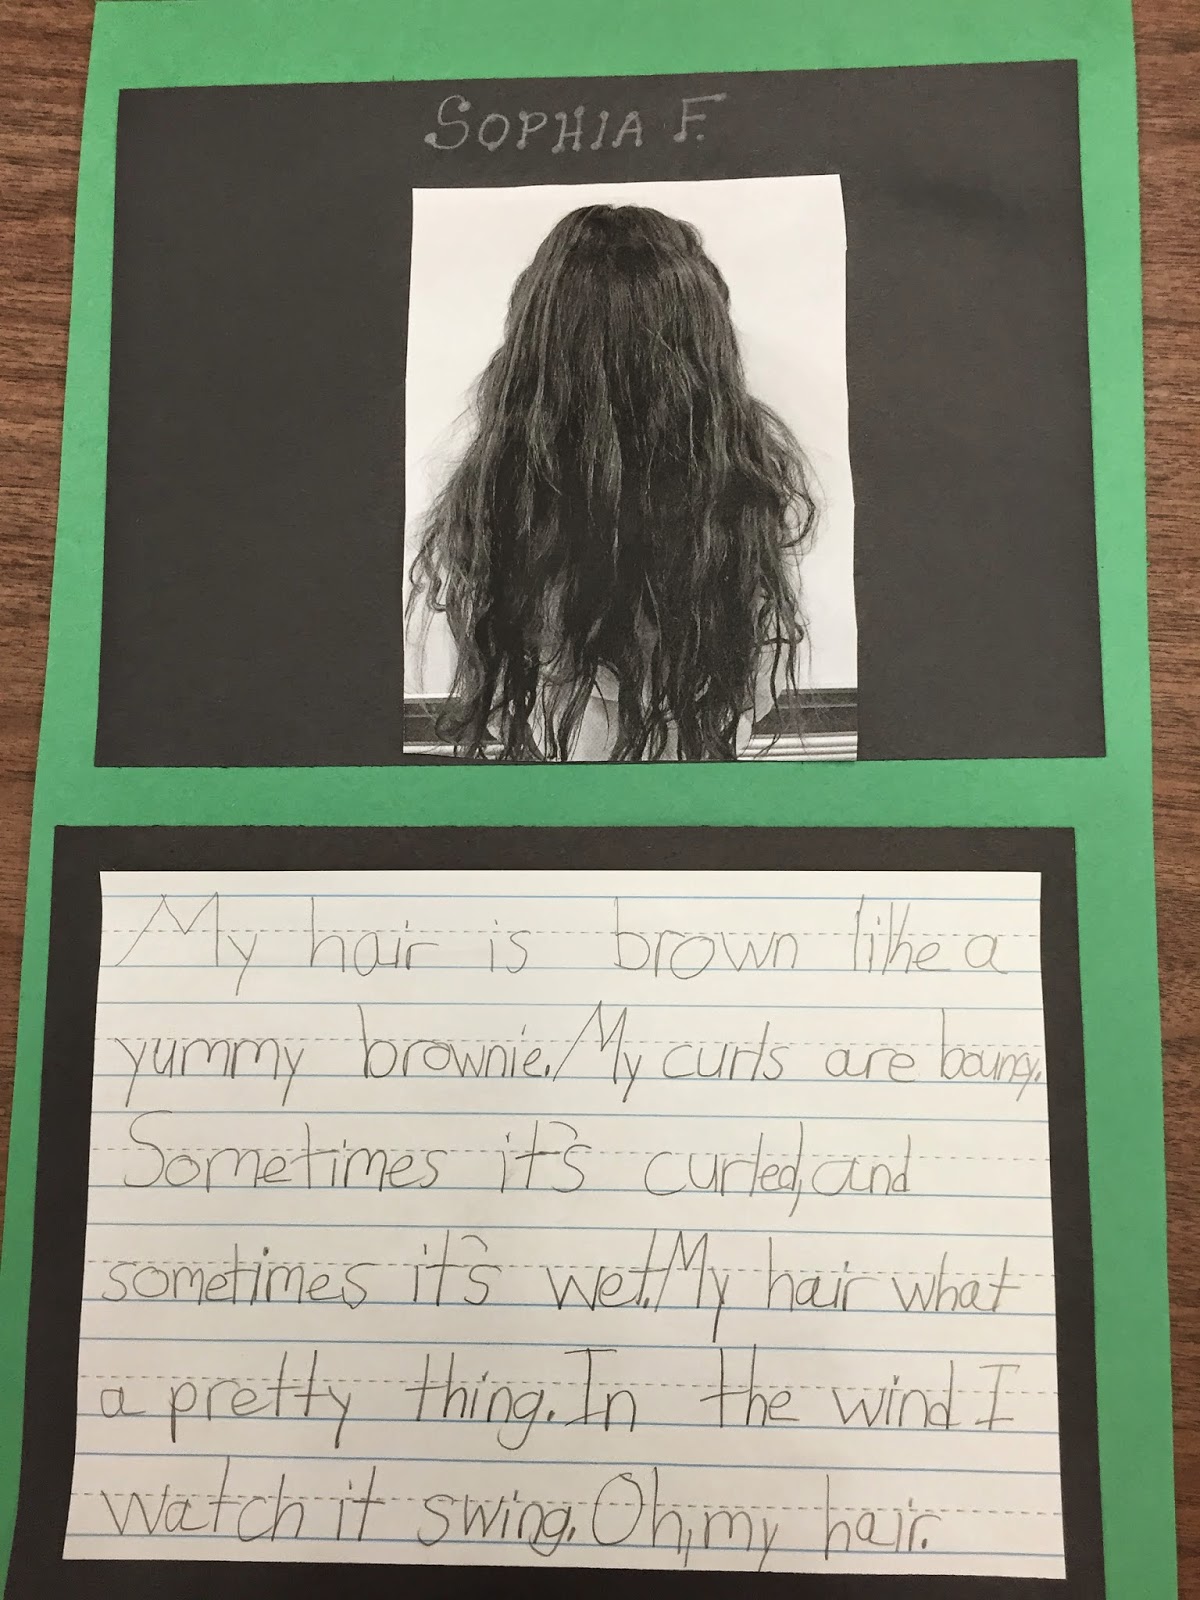 SOPHIA F.
My hair is brown like a
yummy brownie. My curls are bouncy.
Sometimes it's curled, and
sometimes it's wet. My hair what
a pretty thing. In the wind I
watch it swing. Oh, my hair.